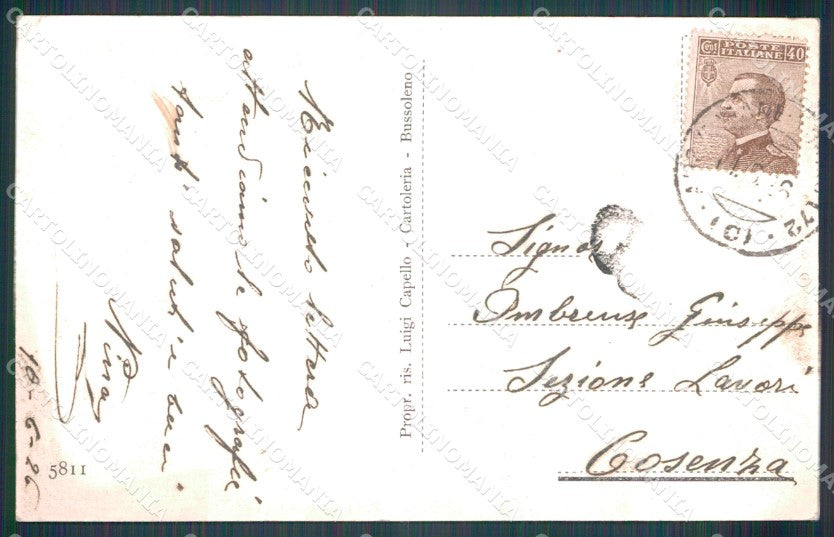 Ricevuto lettera
attendiamo le fotografie
tanti saluti e baci
Nina
10-6-26
5811
Propr. ris. Luigi Capello - Cartoleria - Bussoleno
Cent POSTE ITALIANE 40
Signor
Ambrense Giuseppe
Sezione Lavori
Cosenza
CARTOLINOMANIA